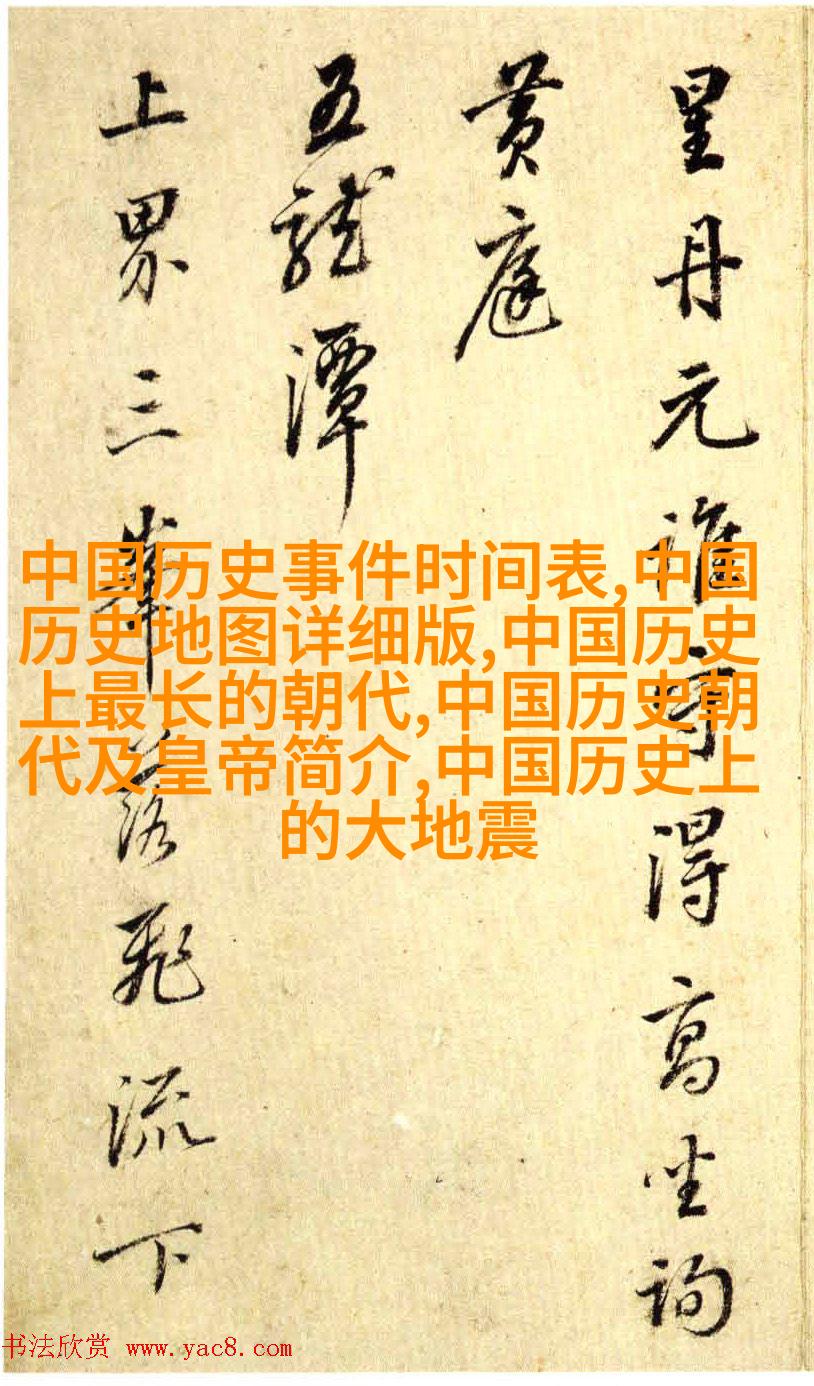 星丹元誰得高坐詢
黄庭
五龍潭
上界三峯落飛流下
中国历史事件时间表,中国
历史地图详细版,中国历史
上最长的朝代,中国历史朝
代及皇帝简介,中国历史上
的大地震
书法欣赏 www.yac8.com